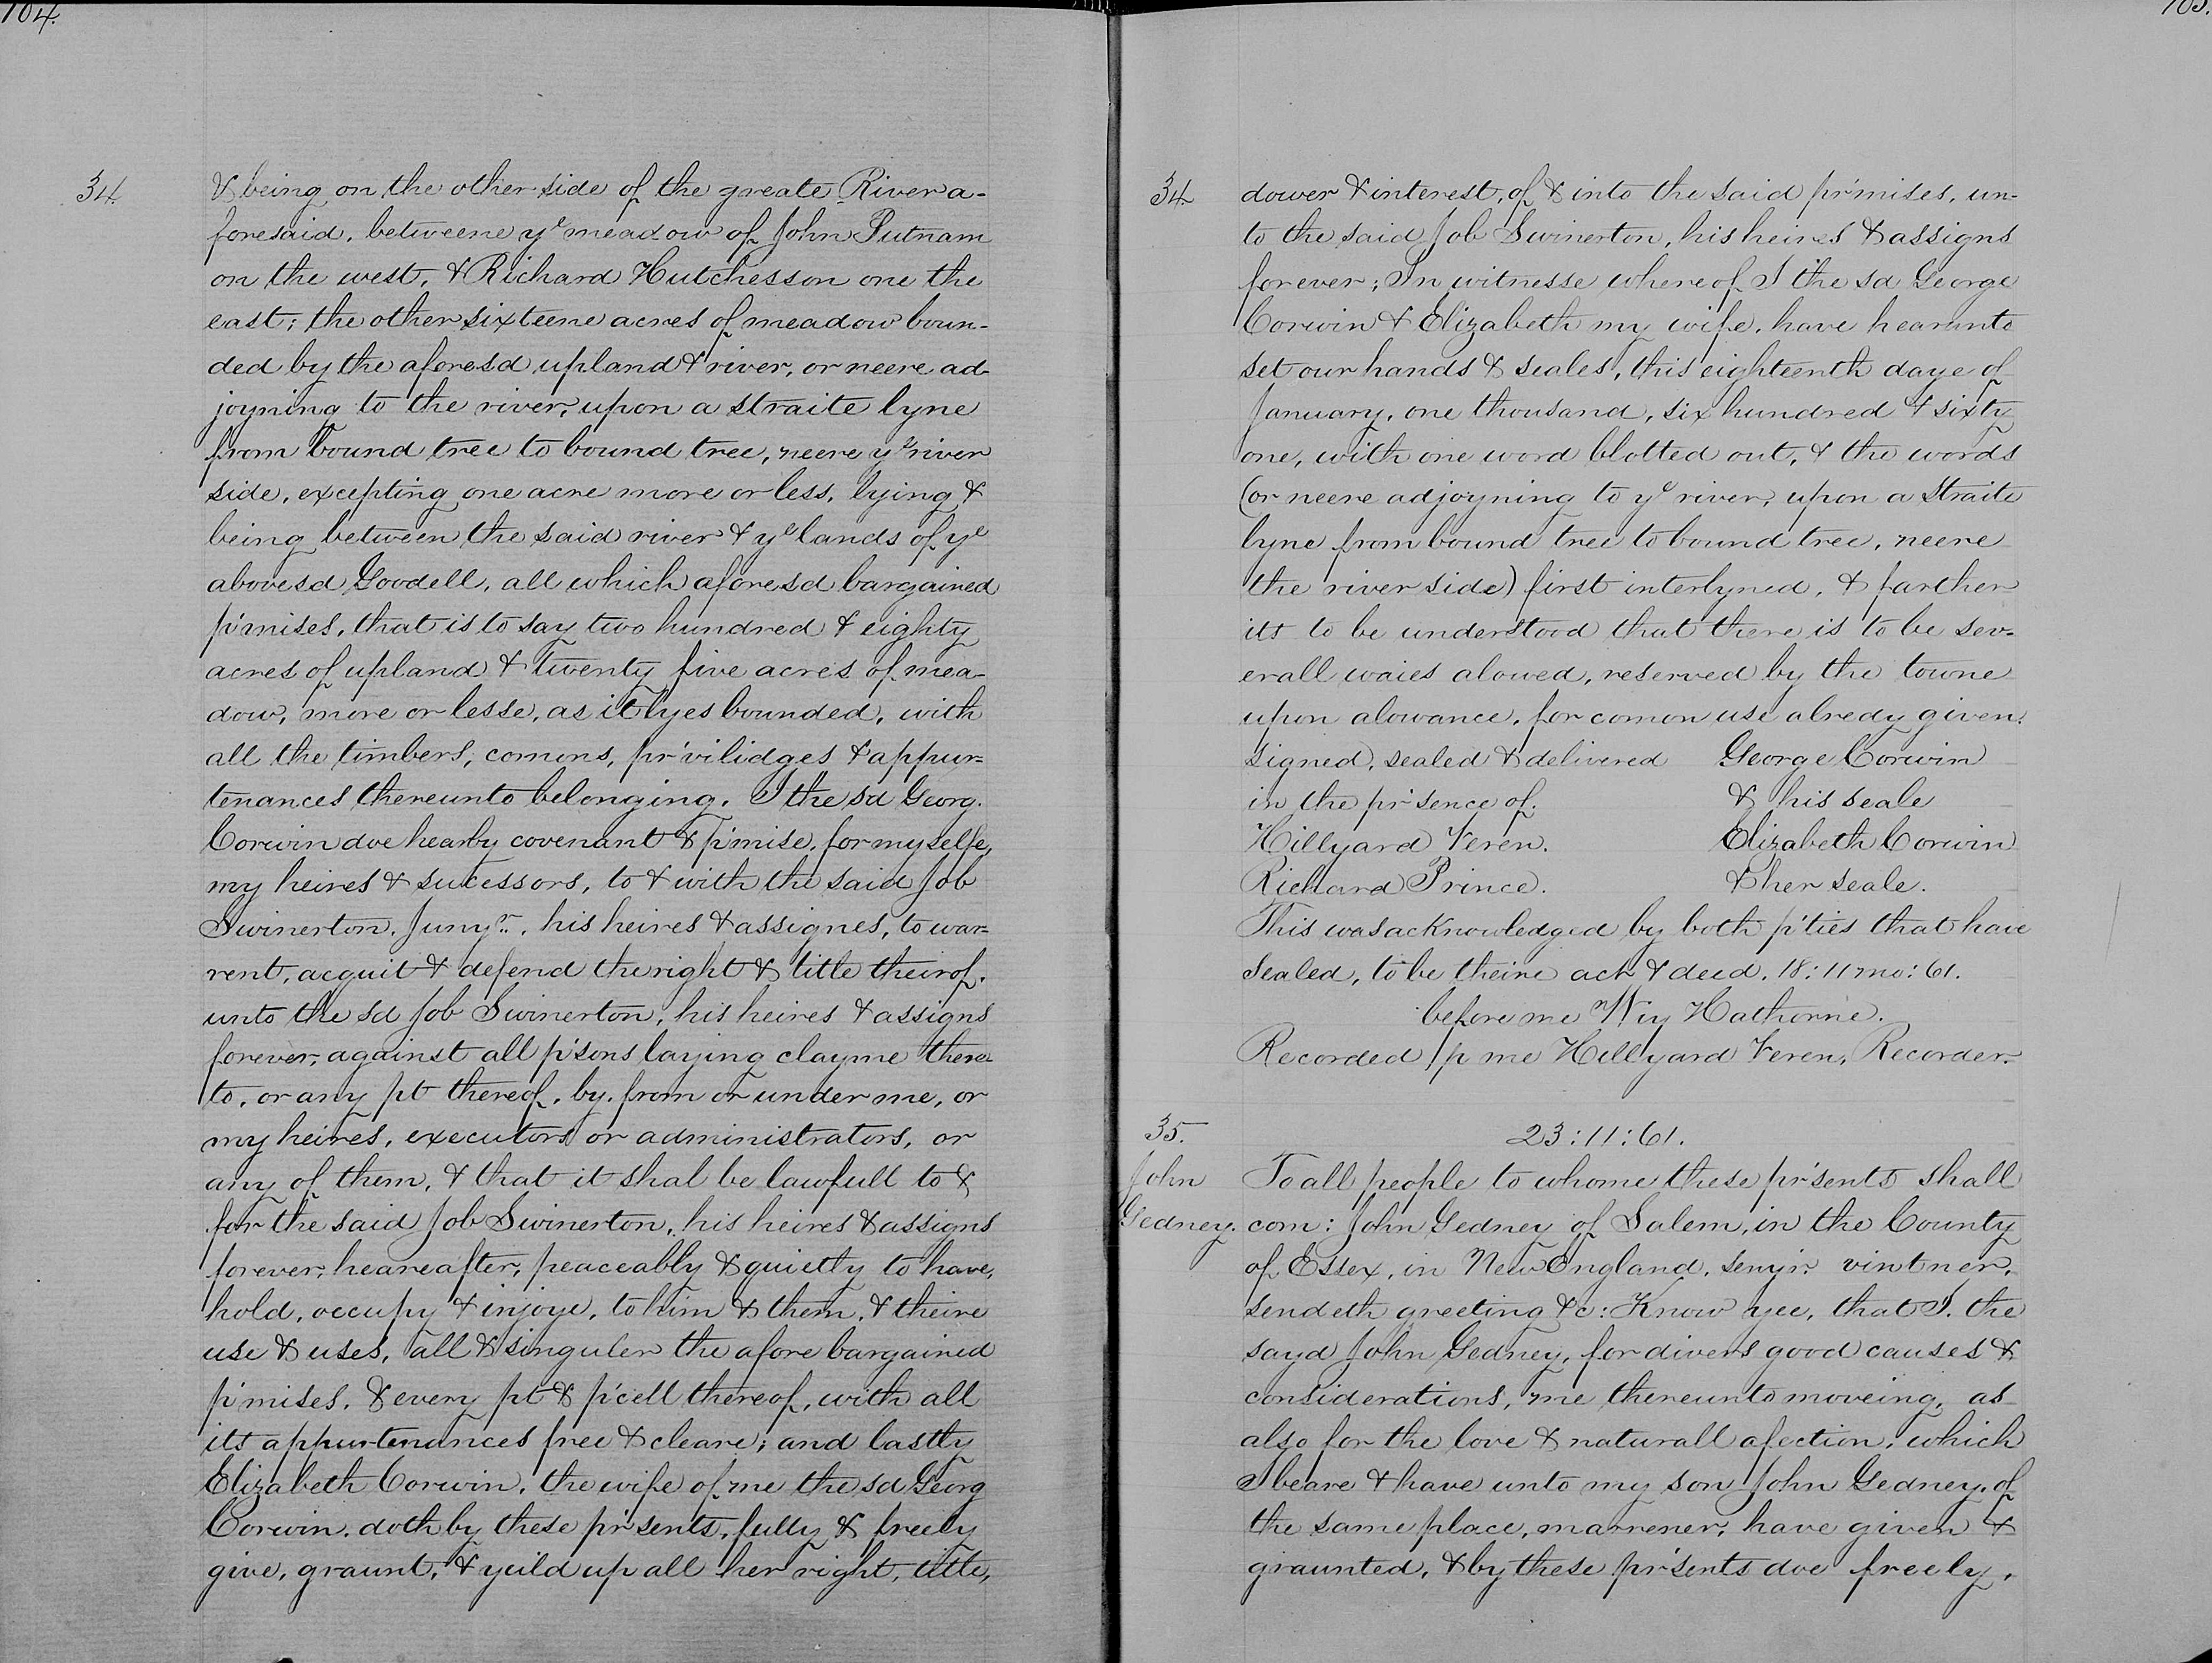 104.
34.
& being on the other side of the greate River a-
foresaid, betweene yᵉ meadow of John Putnam
on the west, & Richard Hutchesson one the
east; the other sixteene acres of meadow boun-
ded by the aforesd upland & river, or neere ad-
joyning to the river, upon a straite lyne
from bound tree to bound tree, neere yᵉ river
side, excepting one acre more or less, lying &
being between the said river & yᵉ lands of yᵉ
abovesd Goodell, all which aforesd bargained
p'mises, that is to say two hundred & eighty
acres of upland & twenty five acres of mea-
dow, more or lesse, as it lyes bounded, with
all the timbers, comons, pr'vilidges & appur=
tenances thereunto belonging. I the sd Georg.
Corwin doe hearby covenant & p'mise, for myselfe,
my heires & sucessors, to & with the said Job
Swinerton, Junyʳ., his heires & assignes, to war=
rent, acquit & defend the right & title theirof,
unto the sd Job Swinerton, his heires & assigns
forever, against all p'sons laying clayme there=
to, or any pt thereof, by, from or under me, or
my heires, executors or administrators, or
any of them, & that it shal be lawfull to &
for the said Job Swinerton, his heires & assigns
forever, heareafter, peaceably & quietly to have,
hold, occupy & injoye, to him & them, & theire
use & uses, all & singuler the afore bargained
p'mises, & every pt & p'cell thereof, with all
its appurtenances free & cleare; and lastly
Elizabeth Corwin, the wife of me the sd Georg
Corwin, doth by these pr'sents, fully & freely
give, graunt, & yeild up all her right, title,
105.
34.
dower & interest, of & into the said pr'mises, un-
to the said Job Swinerton, his heires & assigns
forever; In witnesse whereof I the sd George
Corwin & Elizabeth my wife, have hearunto
set our hands & seales, this eighteenth daye of
January, one thousand, six hundred & sixty
one, with one word blotted out, & the words
(or neere adjoyning to yᵉ river, upon a straite
lyne from bound tree to bound tree, neere
the river side) first interlyned, & farther
its to be understood that there is to be sev=
erall waies alowed, reserved by the towne
upon alowance, for comon use alredy given.
signed, sealed & delivered George Corwin
in the pr'sence of. & his seale
Hillyard Veren. Elizabeth Corwin
Richard Prince. & her seale.
This was acknowledged by both p'ties that have
sealed, to be theire act & deed, 18: 11 mo: 61.
before me Wᵐ Hathorne.
Recorded p me Hillyard Veren, Recorder.
35. 23:11:61.
John
Gedney.
To all people to whome these pr'sents shall
com: John Gedney of Salem, in the County
of Essex, in New England, senyr. vintner,
sendeth greeting &c: Know yee, that I. the
sayd John Gedney, for divers good causes &
considerations, me thereunto moveing, as
also for the love & naturall afection, which
I beare & have unto my son John Gedney, of
the same place, marrener, have given &
graunted, & by these pr'sents doe freely,